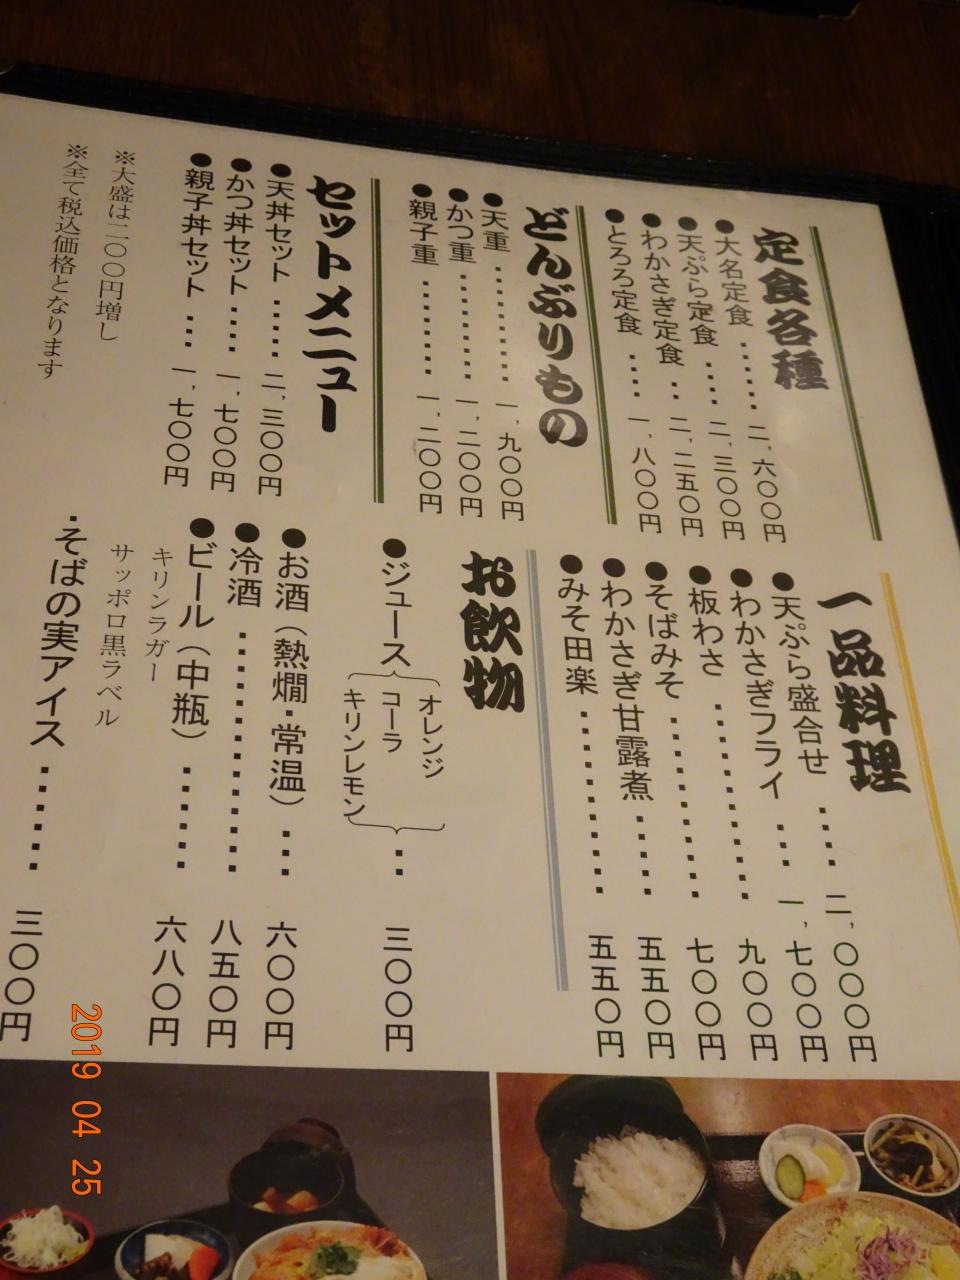 定食各種
●大名定食……二,六〇〇円
●天ぷら定食……二,三〇〇円
●わかさぎ定食…二,二五〇円
●とろろ定食……一,八〇〇円
どんぶりもの
●天重………一,九〇〇円
●かつ重………一,二〇〇円
●親子重………一,二〇〇円
セットメニュー
●天丼セット……二,三〇〇円
●かつ丼セット……一,七〇〇円
●親子丼セット…一,七〇〇円
※大盛は二〇〇円増し
※全て税込価格となります
一品料理
●天ぷら盛合せ……二,〇〇〇円
●わかさぎフライ…一,七〇〇円
●板わさ…………九〇〇円
●そばみそ…………七〇〇円
●わかさぎ甘露煮……五五〇円
●みそ田楽…………五五〇円
お飲物
●ジュース
オレンジ
コーラ
キリンレモン
…三〇〇円
●お酒（熱燗・常温）…六〇〇円
●冷酒…………八五〇円
●ビール（中瓶）……六八〇円
キリンラガー
サッポロ黒ラベル
・そばの実アイス……三〇〇円
2019 04 25